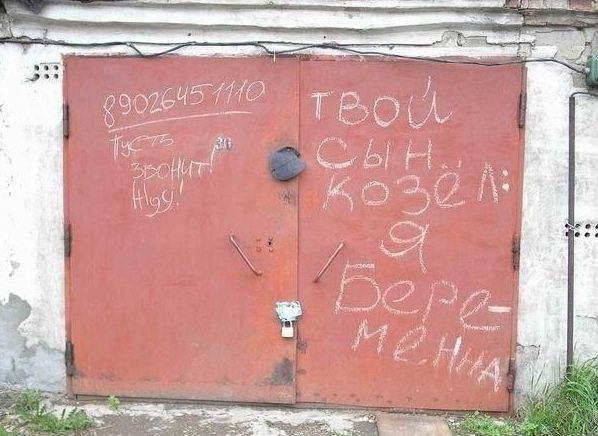 89026451110
Пусть
звонит!
Жду!
30
ТВОЙ
СЫН
КОЗЁЛ:
Я
Бере-
менна